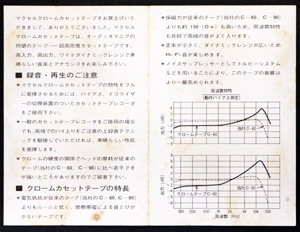 マクセルクロームカセットテープをお買上げいた
だきまして、ありがとうございました。マクセル
クロームカセットテープは、オーディオマニアの
待望のテープ—超高密度カセットテープです。
高入力、高出力、ワイドダイナミックレンジで素晴
■録音・再生のご注意
マクセルクロームカセットテープの特性をフル
に発揮させるためには、バイアス、イコライザ
ーの切替装置がついたカセットテープレコーダ
をご使用下さい。
一般のカセットテープレコーダをご使用の場合
でも、高域でのハイ上りをご注意の上録音テクニ
ックを駆使していただければ、素晴らしい性能
を発揮します。
クロームの硬度の関係でヘッドの摩耗が従来の
テープ(当社のC-60、C-90)に比べ若干で
■クロームカセットテープの特長
電気抵抗が従来のテープ(当社のC-60、C-90)
かないテープです。
保磁力が従来のテープ(当社のC-60、C-90)
よりも約150(Oe)も高いため、周波数特性
も良好で高域の音がよく入ります。
歪率が小さく、ダイナミックレンジが広いため
Hi-Fi音が楽しめます。
ノイズサプレッサーとしてドルビーシステム
などを用いることにより、このテープの音質は
より一層高められます。
周波数特性
(動作バイアス測定)
クロームC-60
当社C-60
クロームC-90
当社C-90
周波数(Hz)